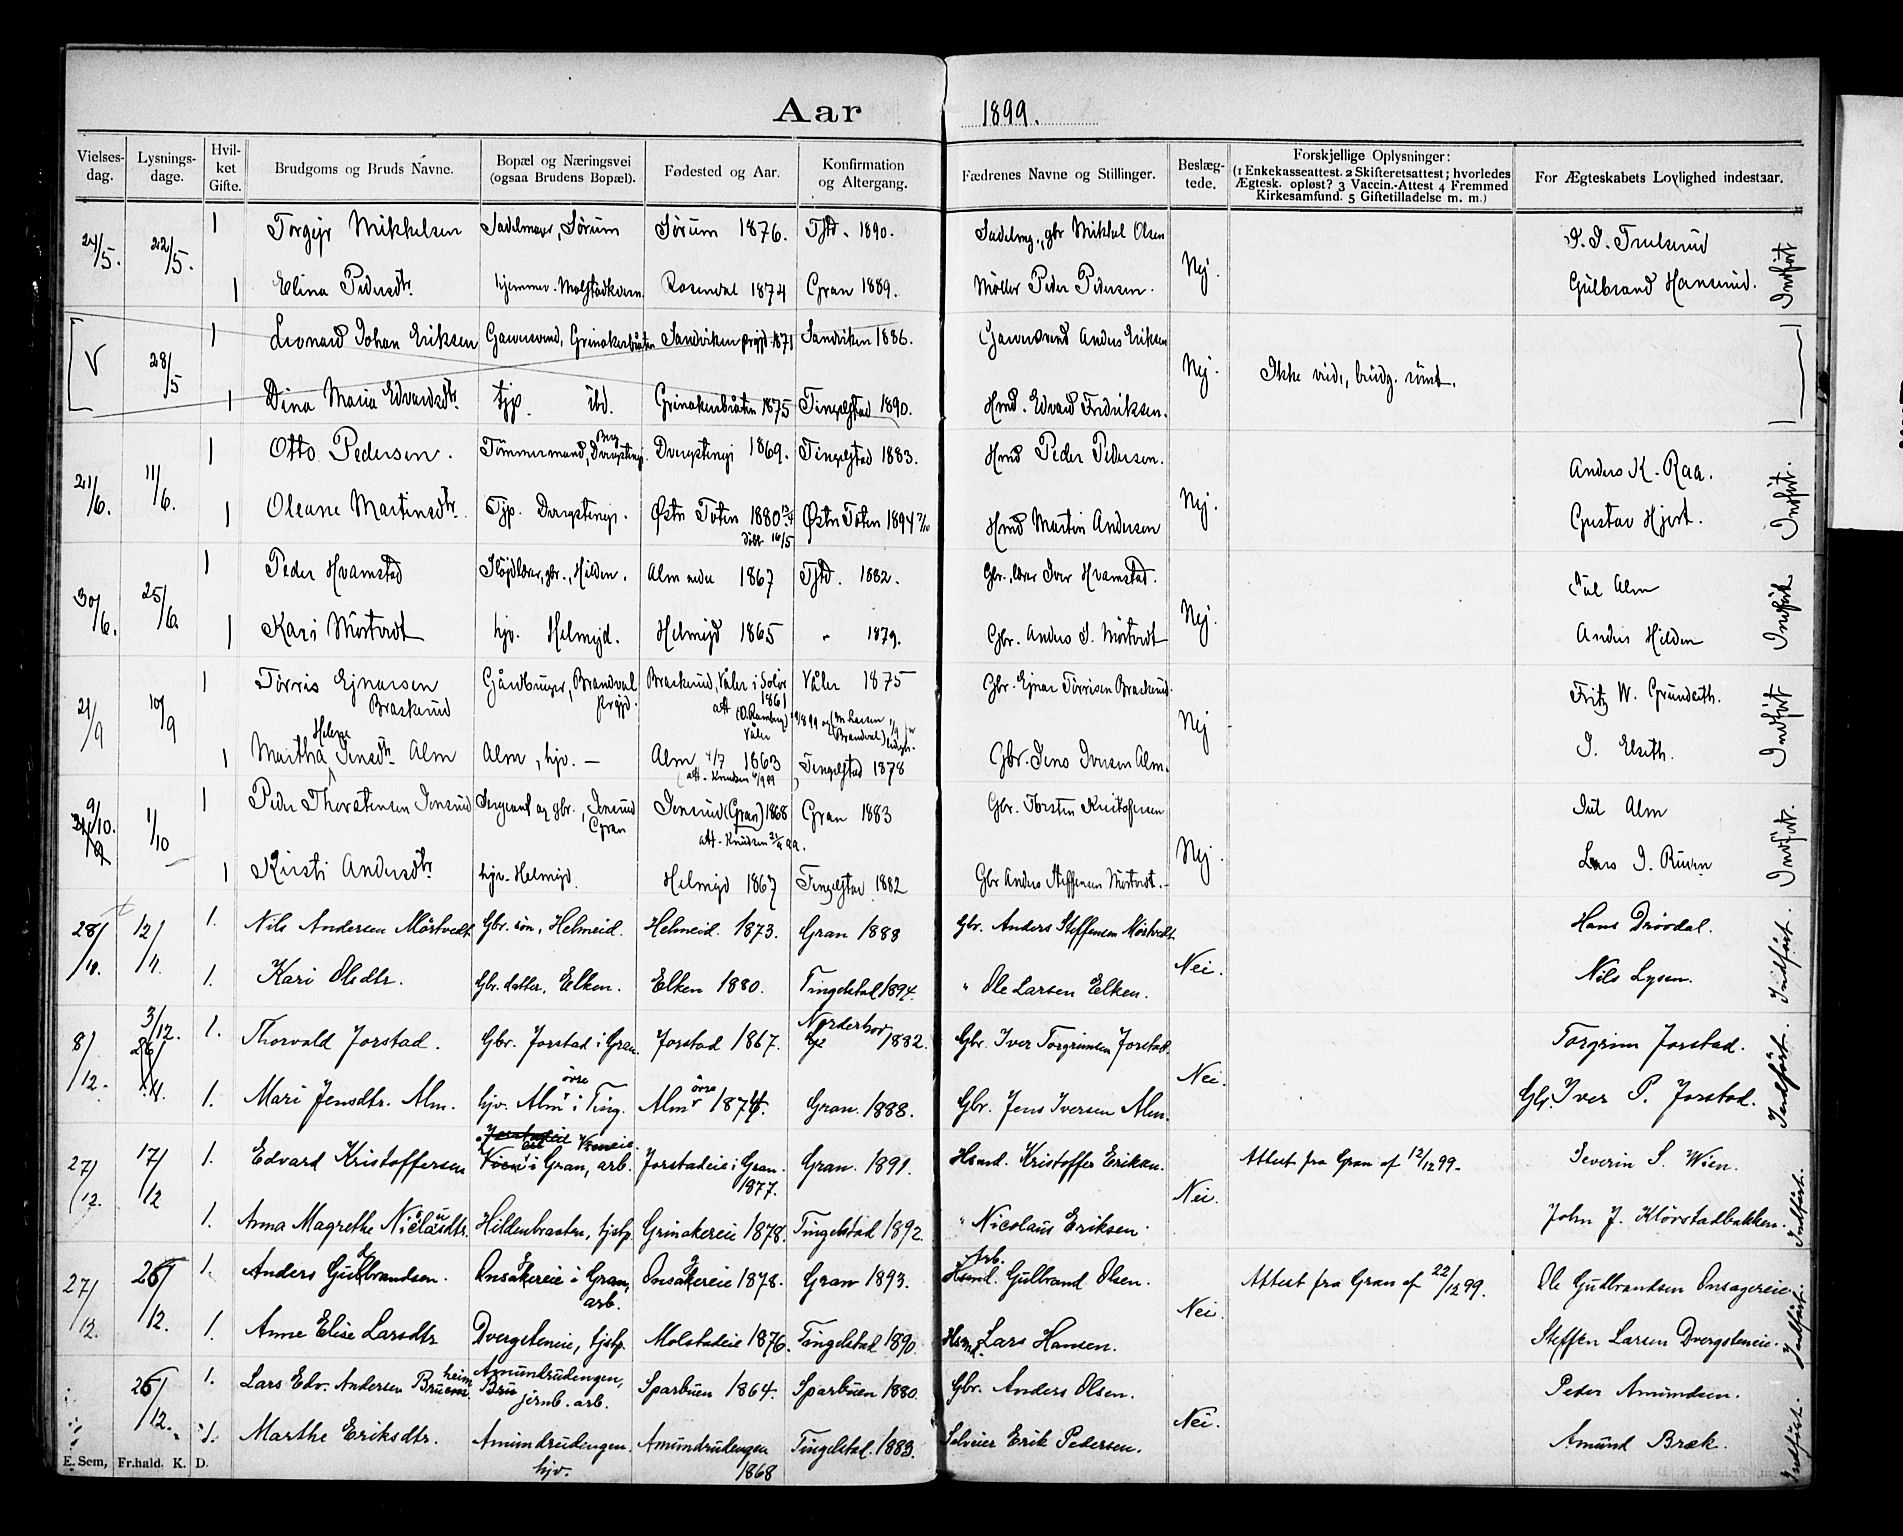 Aar 1899.
Vielses-dag. Lysnings-dage. Hvil-ket Gifte. Brudgoms og Bruds Navne. Bopæl og Næringsvei (ogsaa Brudens Bopæl). Fødested og Aar. Konfirmation og Altergang. Fædrenes Navne og Stillinger. Beslæg-tede. Forskjellige Oplysninger: (1 Enkekasseattest. 2 Skifteretsattest; hvorledes Ægtesk. opløst? 3 Vaccin.-Attest 4 Fremmed Kirkesamfund. 5 Giftetilladelse m. m.) For Ægteskabets Lovlighed indestaar.
24/5. 22/5. 1 Torgejr Mikkelsen Sadelmager, Sørum Sørum 1876. Tjtd. 1890. Sadelmg., gbr Mikkel Olsen Nej.
1 Elina Pedersdtr. hjemmev. Molstadkvern Rosendal 1874 Gran 1889. Møller Peder Pedersen. Gulbrand Hansrud. Indført
V 28/5 1 Leonard Johan Eriksen Garversvend, Grinakerbraaten Sandviken prgjd. 1871 Sandviken 1886. Garversvend Anders Eriksen Nej. Ikke viet, brudg. rømt.
1 Dina Maria Edvardsdtr. tjp. ibd. Grinakerbraaten 1875 Tingelstad 1890. Hmd. Edvard Fredriksen.
21/6. 11/6. 1 Otto Pedersen. Tømmermand, Dvergstenej. Dvergstenej 1869. Tingelstad 1883. Hmd Peder Pedersen. Nej. Anders K. Raa.
1 Oleane Martinsdtr. Tjp. Dvergstenej. Østre Toten 1880 døbt 16/5 Østre Toten 1894 Hmd Martin Andersen Gustav Hjert. Indført.
30/6. 25/6. 1 Peder Hvamstad Sløjdlærer, gbr., Hilden. Alm nedre 1867 Tjtd. 1882. Gbr., lærer Iver Hvamstad. Nej. Jul Alm
1 Kari Mørtvedt hjv. Helmejd. Helmejd 1865 " 1879. Gbr. Anders S. Mørtvedt Anders Hilden Indført
21/9 10/9 1 Tørris Ejnarsen Braskerud Gårdbruger, Brandval prgjd. Braskerud, Våler i Solør 1861 Våler 1875 Gbr. Ejnar Tørrisen Braskerud. Nej Fritz W. Grundseth.
1 Martha Helene Jensdtr. Alm Alm, hjv. — Alm 4/7 1863 Tingelstad 1878 Gbr. Jens Iversen Alm. I. Elseth. Indført
9/10. 1/10 1 Peder Thorstensen Jensrud Sergeant og gbr., Jensrud Gran Jensrud (Gran) 1868 Gran 1883 Gbr. Torsten Kristofersen Nej. Jul Alm
1 Kirsti Andersdtr. hjv. Helmejd. Helmejd 1867 Tingelstad 1882 Gbr Anders Steffensen Mørtvedt. Lars I. Ruen Indført.
28/11. 12/11. 1. Nils Andersen Mörtvedt. Gbr. søn, Helmeid. Helmeid. 1873. Gran 1888 Gbr. Anders Steffensen Mörtvedt. Nei. Hans Drövdal.
1. Kari Olsdtr. Gbr. datter, Elken. Elken 1880. Tingelstad 1894. " Ole Larsen Elken. Nils Lysen. Indført.
8/12. 3/12. 26/11. 1. Thorvald Jorstad. Gbr. Jorstad i Gran. Jorstad 1867. Norderhov 1882. Gbr. Iver Torgrimsen Jorstad. Nei. Torgrim Jorstad.
1. Mari Jensdtr. Alm. hjv. Alm övre i Ting. Alm övre 1874. Gran. 1888. Gbr. Jens Iversen Alm. Gbr. Iver P. Jorstad. Indført.
27/12. 17/12 1. Edvard Kristoffersen i Gran, arb. Jorstadeie i Gran. 1877. Gran. 1891. Hsmd. Kristoffer Eriksen. Nei. Attest fra Gran af 12/12 99. Severin S. Wien.
1. Anna Magrethe Nicolausdtr. Hildenbraaten, tjstp. Grinakereie 1878. Tingelstad 1892. " Nicolaus Eriksen. John J. Klövstadbakken. Indført.
27/12. 26/12. 1. Anders Gudbrandsen. Onsakereie i Gran, arb. Onsakereie 1878. Gran 1893. Arb. Gulbrand Olsen. Nei. Attest fra Gran af 22/12 99. Ole Gudbrandsen Onsagereie.
1. Anne Elise Larsdtr Dvergsteneie, tjstp. Molstadeie 1876. Tingelstad 1890. Hsmd. Lars Hansen. Steffen Larsen Dvergsteneie. Indført.
26/12. 1. Lars Edv. Andersen Bruemheim Amundrudengen, jernb. arb. Sparbuen 1864. Sparbuen 1880. Gbr. Anders Olsen. Nei. Peder Amundsen.
1. Marthe Eriksdtr. Amundrudengen. hjv. Amundrudengen 1868 Tingelstad. 1883. Selveier Erik Pedersen. Amund Bræk. Indført.
E. Sem, Fr.hald. K. D.